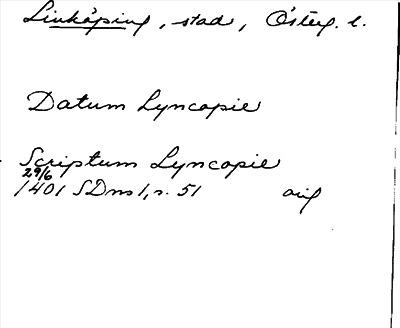 Linköping, stad, Österg. l.
Datum Lyncopie
Scriptum Lyncopie
29/6
1401 SDns 1, s. 51 orig